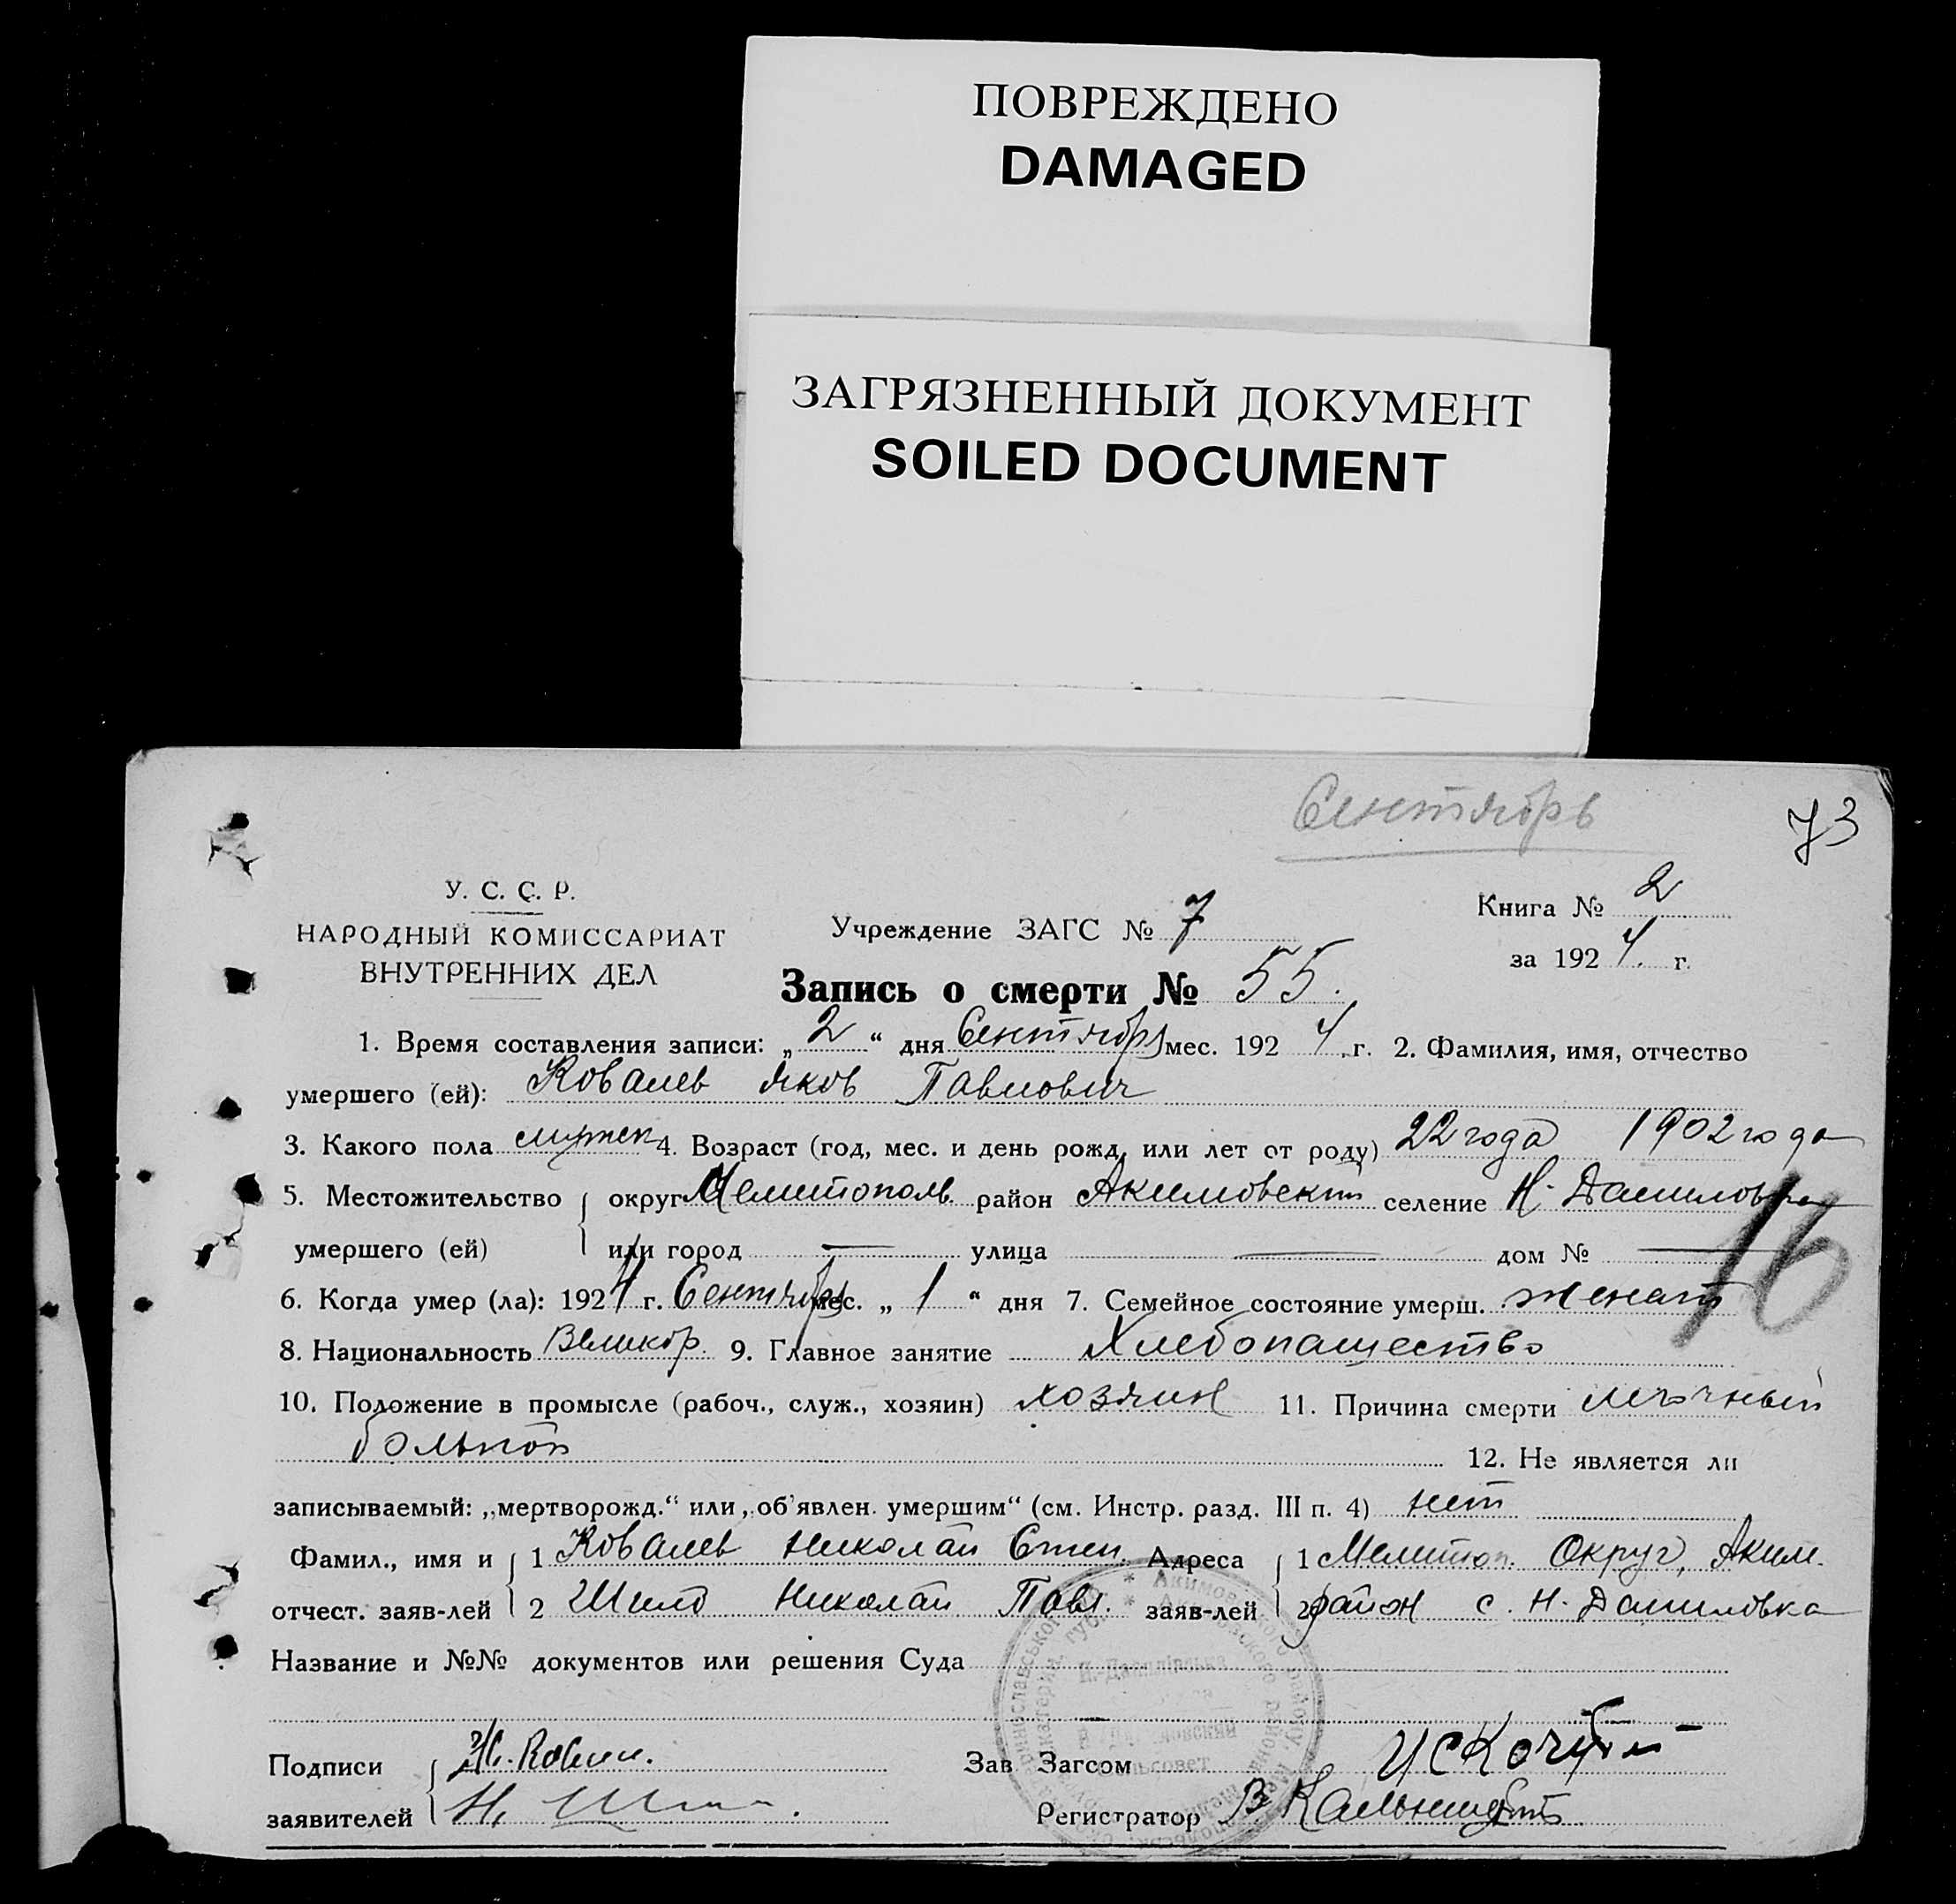 ПОВРЕЖДЕНО
DAMAGED
ЗАГРЯЗНЕННЫЙ ДОКУМЕНТ
SOILED DOCUMENT
Сентябрь
73
У. С. С. Р.
НАРОДНЫЙ КОМИССАРИАТ
ВНУТРЕННИХ ДЕЛ
Учреждение ЗАГС № 7
Книга № 2
за 1924. г.
Запись о смерти № 55.
1. Время составления записи: „2“ дня Сентябр мес. 1924 г. 2. Фамилия, имя, отчество
умершего (ей): Ковалев Яков Павлович
3. Какого пола мужск 4. Возраст (год, мес. и день рожд. или лет от роду) 22 года 1902 года
5. Местожительство округ Мелитополь. район Акимовский селение Н-Даниловка
умершего (ей) или город — улица — дом № —
16
6. Когда умер (ла): 1924 г. Сентябрь мес. „1“ дня 7. Семейное состояние умерш. женат
8. Национальность Великор. 9. Главное занятие Хлебопашество
10. Положение в промысле (рабоч., служ., хозяин) хозяин 11. Причина смерти
больной 12. Не является ли
записываемый: „мертворожд.“ или „об'явлен. умершим“ (см. Инстр. разд. III п. 4) нет
Фамил., имя и 1 Ковалев Николай Степ. Адреса 1 Мелитоп. Округ, Аким.
отчест. заяв-лей 2 Шило Николай Павл. заяв-лей 2 район с. Н-Даниловка
Название и №№ документов или решения Суда
Подписи Н. Ковал. Зав Загсом
заявителей Н. Регистратор В